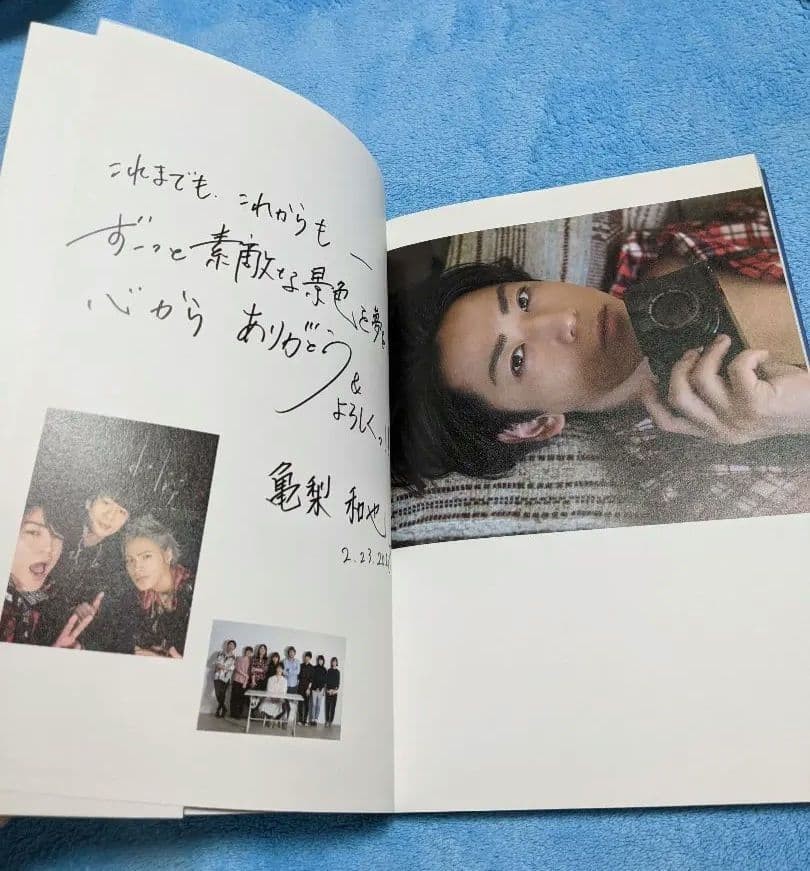 これまでも、これからも
ずーっと素敵な景色を夢を
心から ありがとう
&
よろしくっ!!
亀梨 和也
2.23.20